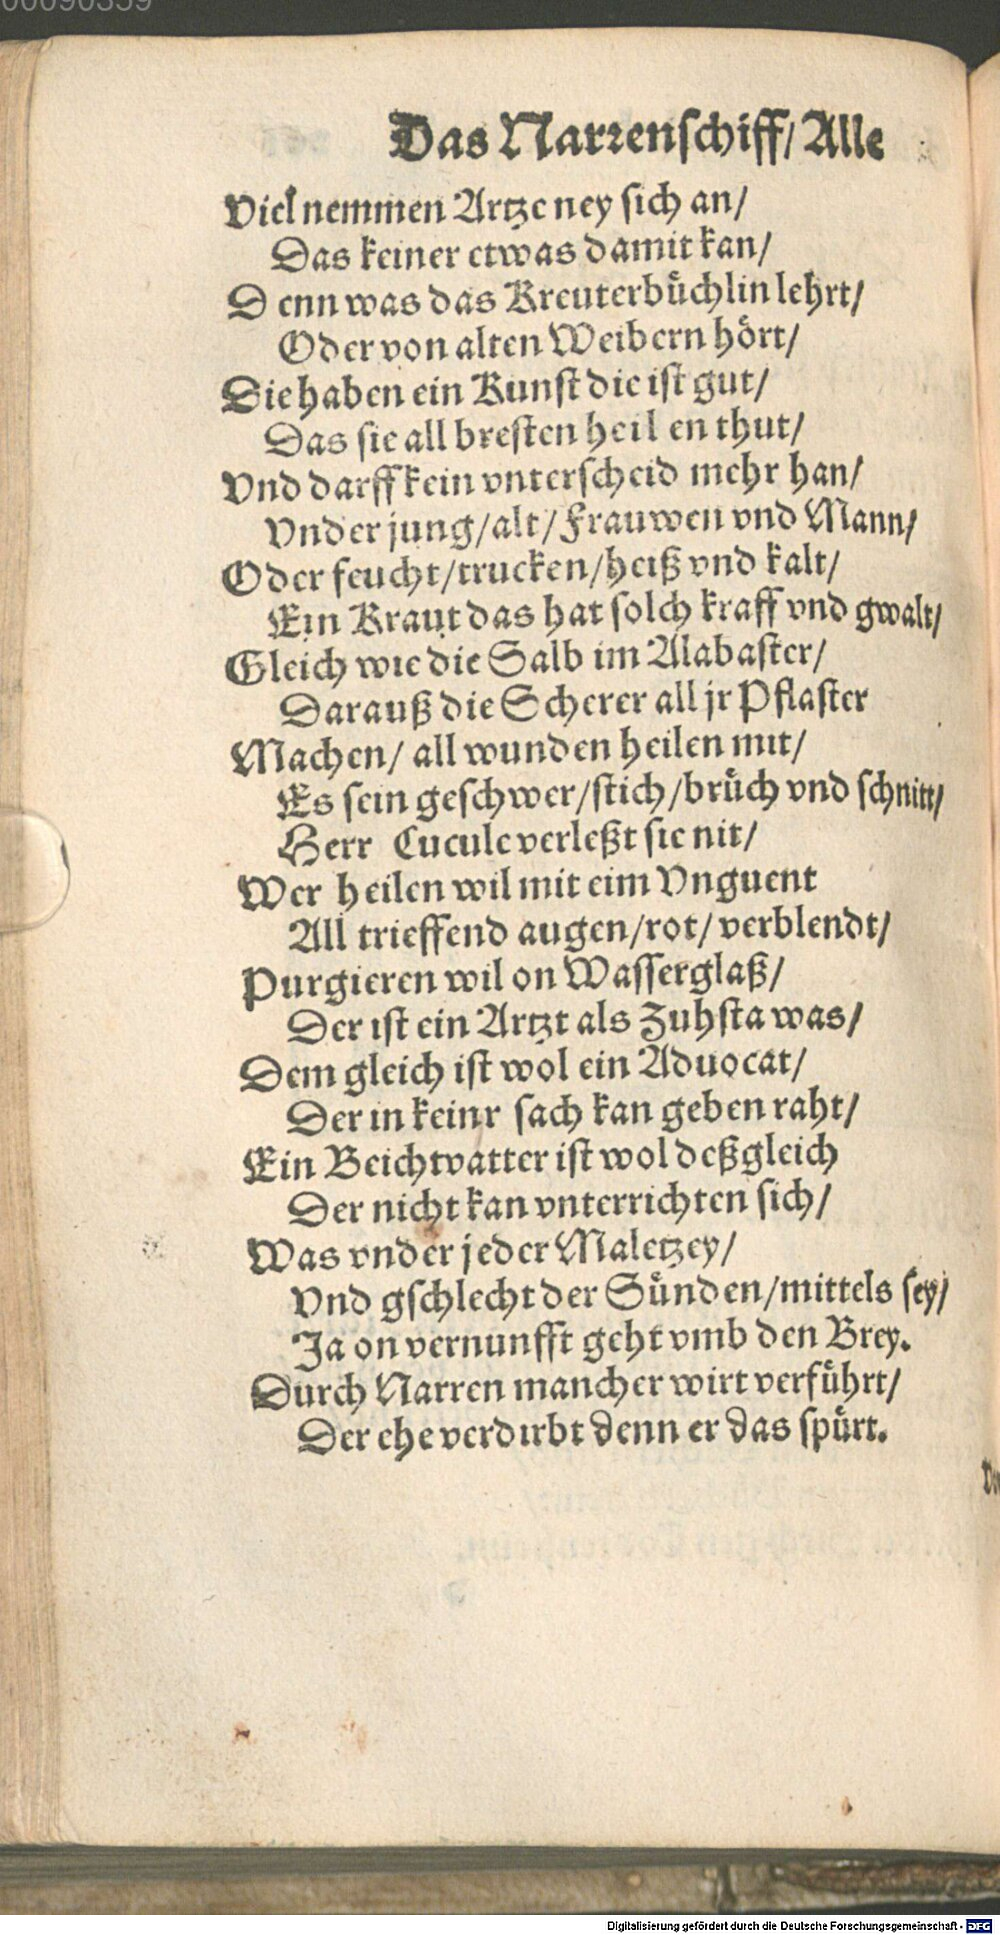 00090359
Das Narrenschiff/ Alle
Viel nemmen Artzeney sich an/
Das keiner etwas damit kan/
Denn was das Kreuterbüchlin lehrt/
Oder von alten Weibern hört/
Die haben ein Kunst die ist gut/
Das sie all bresten heilen thut/
Vnd darff kein vnterscheid mehr han/
Vnder jung/alt/Frauwen vnd Mann/
Oder feucht/trucken/heiß vnd kalt/
Ein Kraut das hat solch kraff vnd gwalt/
Gleich wie die Salb im Alabaster/
Darauß die Scherer all jr Pflaster
Machen/ all wunden heilen mit/
Es sein geschwer/stich/brüch vnd schnitt/
Herr Cucule verleßt sie nit/
Wer heilen wil mit eim Vnguent
All trieffend augen/rot/ verblendt/
Purgieren wil on Wasserglaß/
Der ist ein Artzt als Zuhsta was/
Dem gleich ist wol ein Aduocat/
Der in keinr sach kan geben raht/
Ein Beichtvatter ist wol deßgleich
Der nicht kan vnterrichten sich/
Was vnder jeder Maletzey/
Vnd gschlecht der Sünden/mittels sey/
Ja on vernunfft geht vmb den Brey.
Durch Narren mancher wirt verführt/
Der ehe verdirbt denn er das spürt.
Digitalisierung gefördert durch die Deutsche Forschungsgemeinschaft - DFG